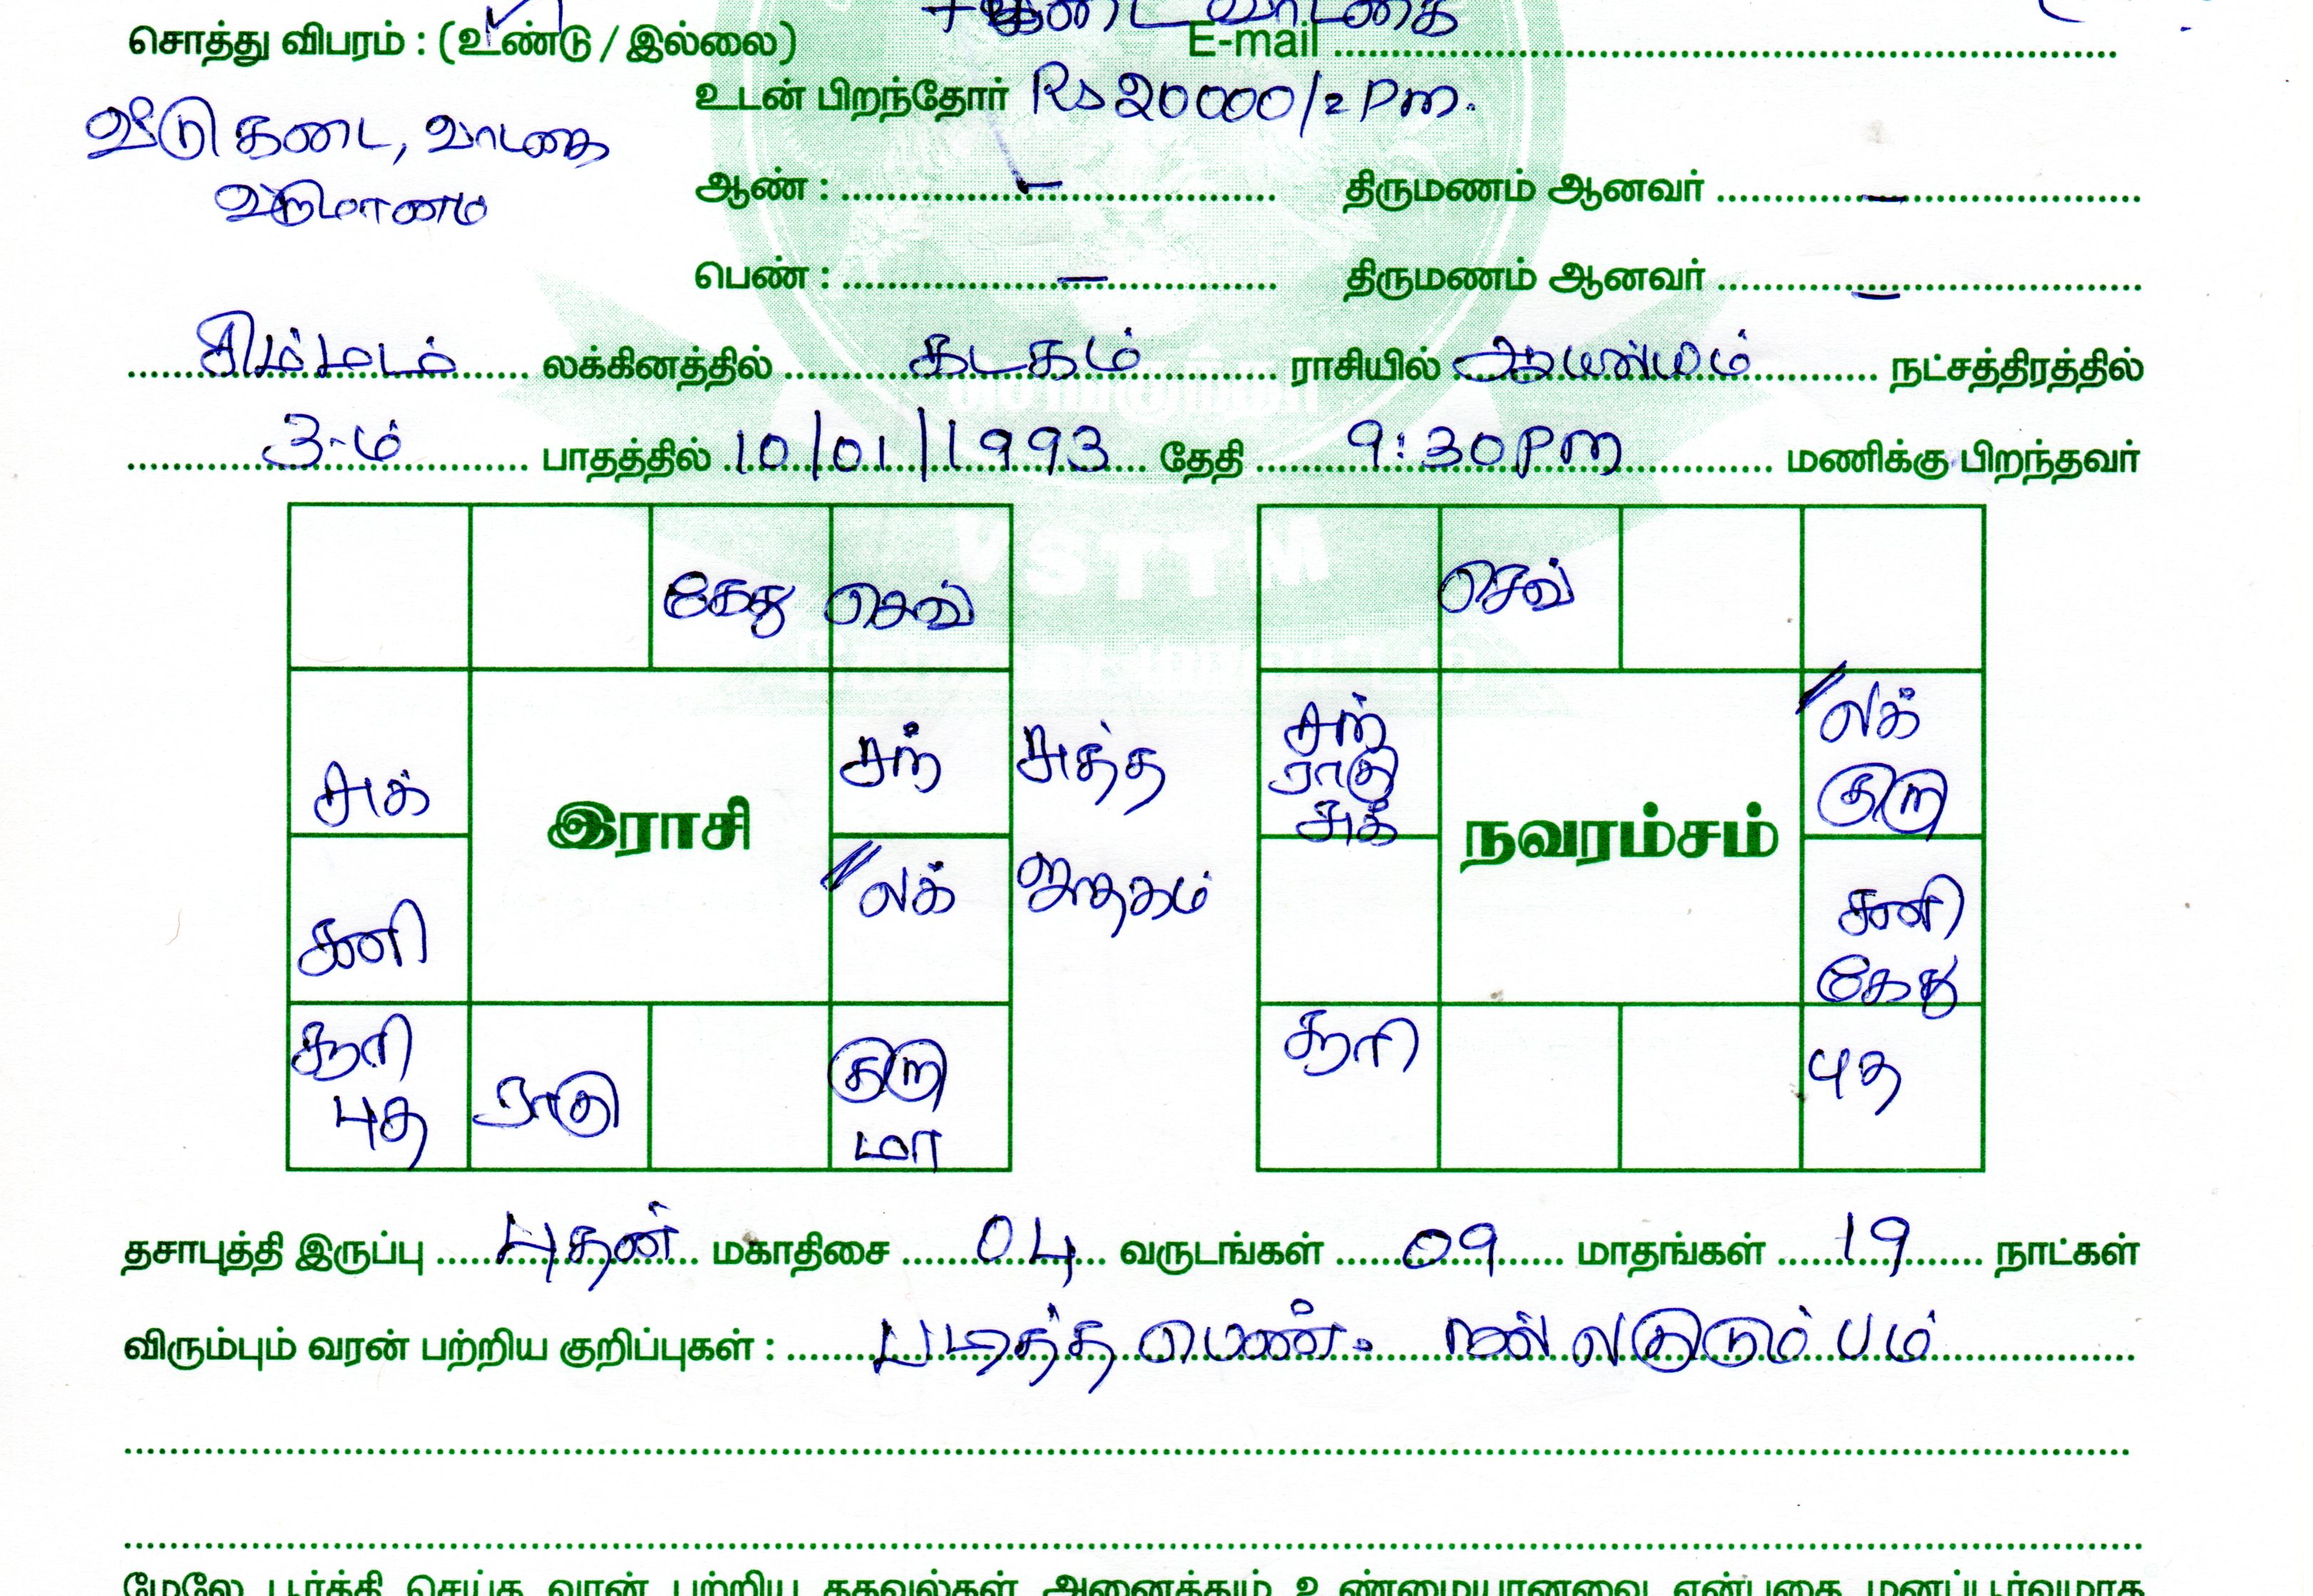 + கடை வாடகை
சொத்து விபரம் : (உண்டு / இல்லை) E-mail
உடன் பிறந்தோர் Rs 20000/= Pm.
வீடு கடை, வாடகை
வருமானம்
ஆண் : – திருமணம் ஆனவர் –
பெண் : – திருமணம் ஆனவர் –
சிம்மம் லக்கினத்தில் கடகம் ராசியில் ஆயில்யம் நட்சத்திரத்தில்
3-ம் பாதத்தில் 10/01/1993 தேதி 9:30 Pm மணிக்கு பிறந்தவர்
VSTTM
கேது செவ் செவ்
சுக் இராசி சந் சுத்த சந் ராகு சுக் நவரம்சம் லக் குரு
சனி லக் ஜாதகம் சனி கேது
சூரி புத ராகு குரு மா சூரி புத
தசாபுத்தி இருப்பு புதன் மகாதிசை 04 வருடங்கள் 09 மாதங்கள் 19 நாட்கள்
விரும்பும் வரன் பற்றிய குறிப்புகள் : படித்த பெண். நல்லகுடும்பம்
மேலே பூர்த்தி செய்த வரன் பற்றிய தகவல்கள் அனைத்தும் உண்மையானவை என்பதை மனப்பூர்வமாக